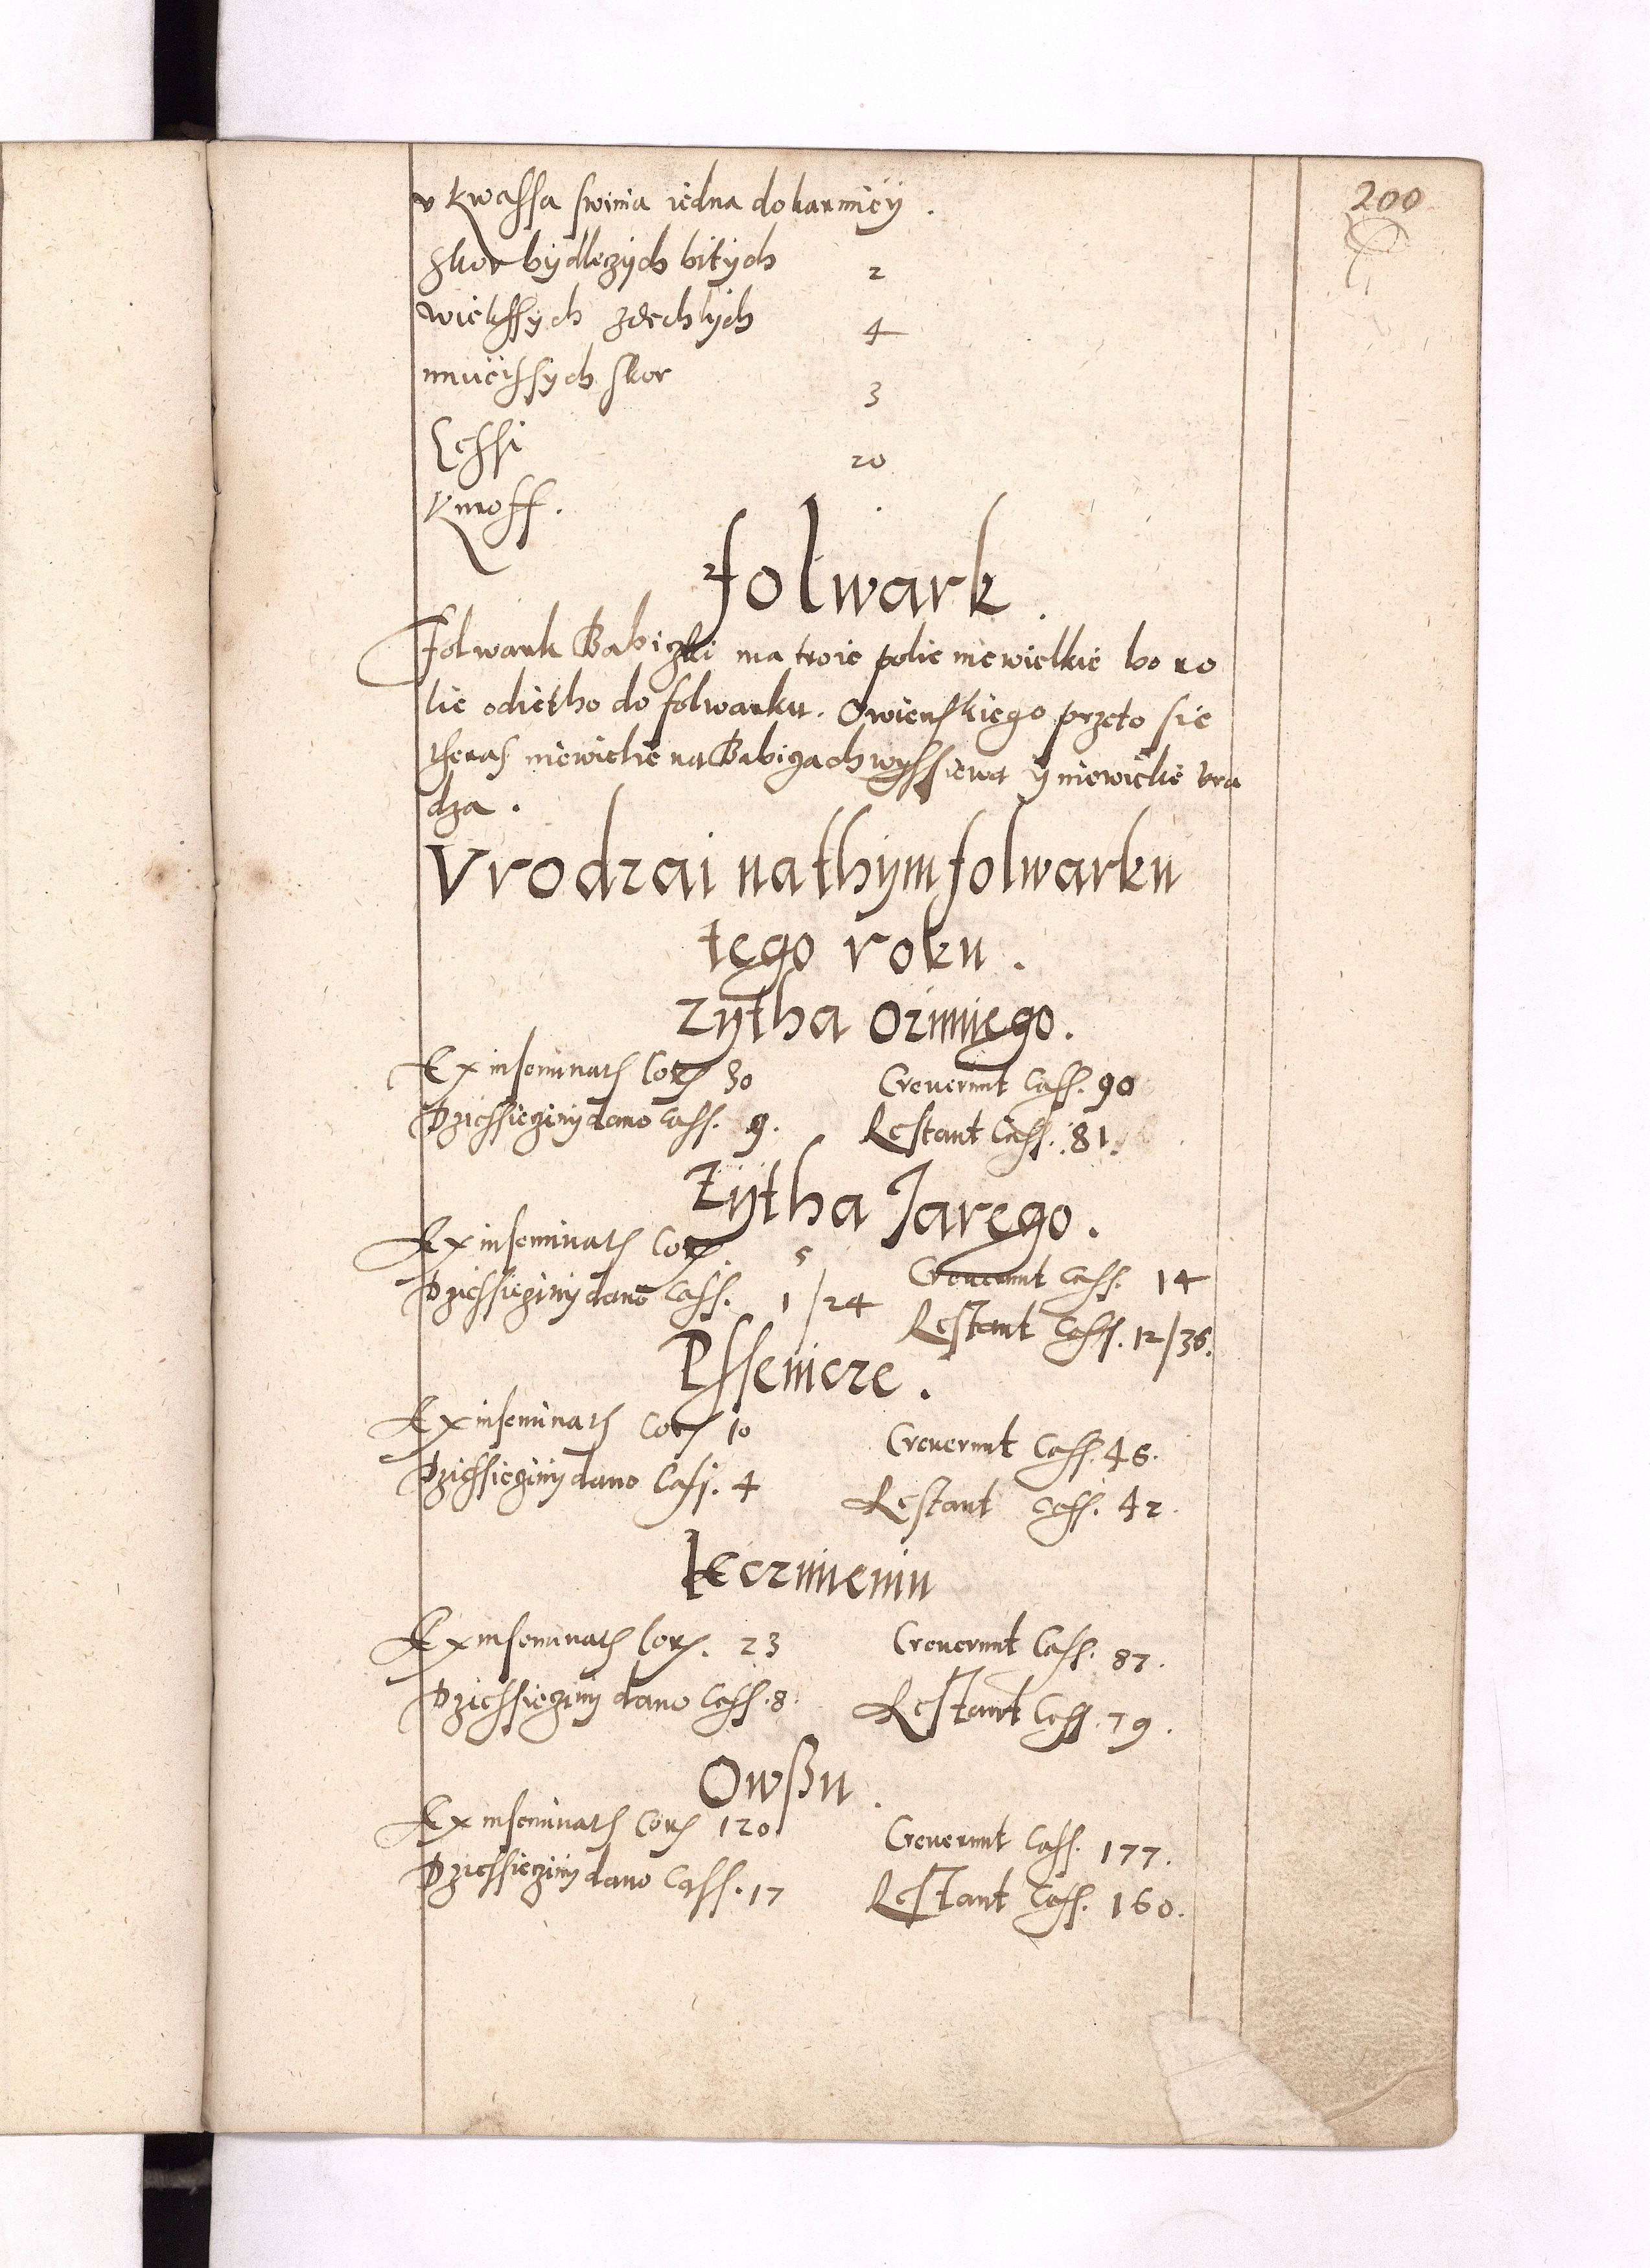 200
v kwassa swinia iedna do karmiey .
Skor bydlezych bitych 2
wiekssych zdechlych 4
mnieissych skor 3
Gessi 20
kuroff .
folwark .
Folwark Babiczki ma troie polie niewielkie bo ro
lie odietho do folwarku Owienskiego przeto sie
theras niewielie na Babiczach wyssiewa y niewielie vra
dza .
Vrodzai na thym folwarku
tego roku .
Zytha Ozimiego .
Ex inseminatis Cor 30 Creuerunt Cass. 90
Dziessieciny dano Cass. 9. Restant Cass. 81.
Zytha Jarego .
Ex inseminatis Cor. 5 Creuerunt Cass. 14
Dziessieciny dano Cass. 1/24 Restant Cass. 12/36.
Pssenicze .
Ex inseminatis Cor 10 Creuerunt Cass. 46.
Dziessieciny dano Cass. 4 Restant Cass. 42.
Jeczmieniu
Ex inseminatis Cor. 23 Creuerunt Cass. 87.
Dziessieciny dano Cass. 8. Restant Cass. 79.
Owßu .
Ex inseminatis Cor 120. Creuerunt Cass. 177.
Dziessieciny dano Cass. 17 Restant Cass. 160.